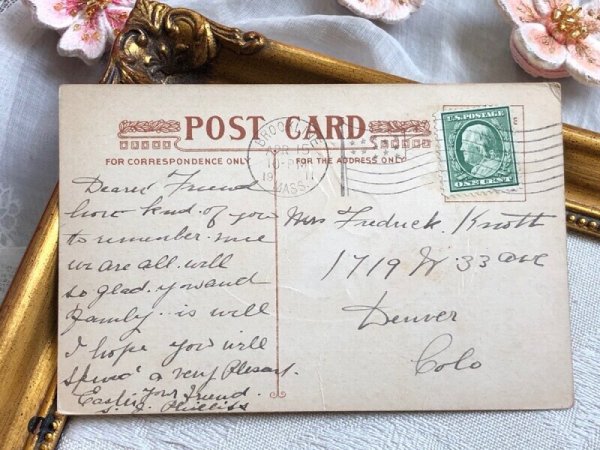 POST CARD
FOR CORRESPONDENCE ONLY
FOR THE ADDRESS ONLY
BROOKLINE
APR 15
10-PM
19 11
MASS.
U.S. POSTAGE
ONE CENT
Dear Friend
how kind of you
to remember me
we are all well
so glad you and
Family is well
I hope you will
spend a very Pleasant
Easter Your Friend
Mrs Fredrick Knott
1719 W. 33 ave
Denver
Colo